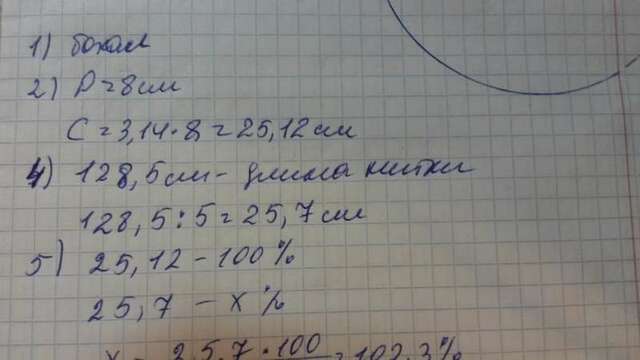 1) бокал
2) D = 8 см
C = 3,14 · 8 = 25,12 см
4) 128,5 см - длина нитки
128,5 : 5 = 25,7 см
5) 25,12 - 100 %
25,7 - x %
x = 25,7 · 100 = 102,3 %